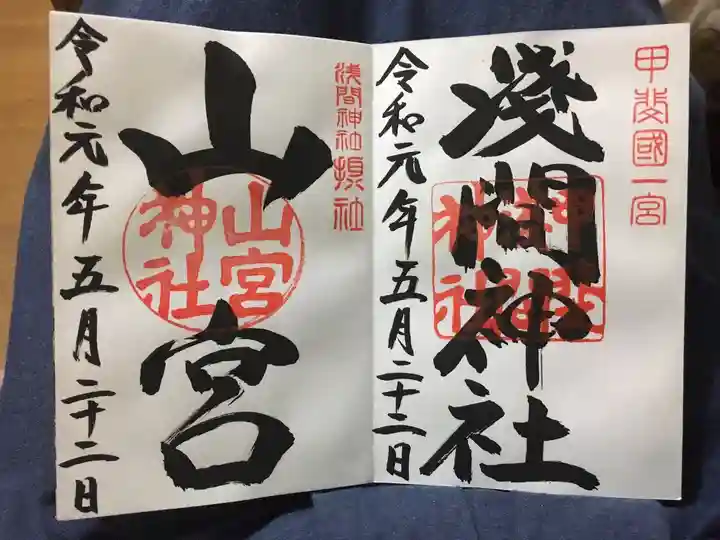 甲斐國一宮
淺間神社
淺間神社
令和元年五月二十二日
浅間神社摂社
山宮
山宮神社
令和元年五月二十二日